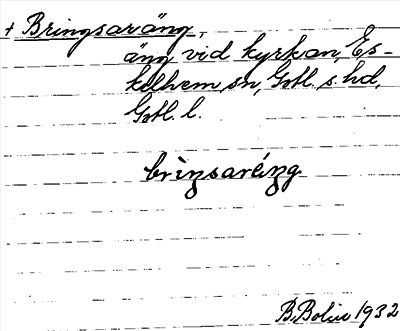 + Bringsaräng,
äng vid kyrkan, Es-
kelhem sn, Gotl. s. hd,
Gotl. l.
brìŋsaréŋg
B. Bolin 1932